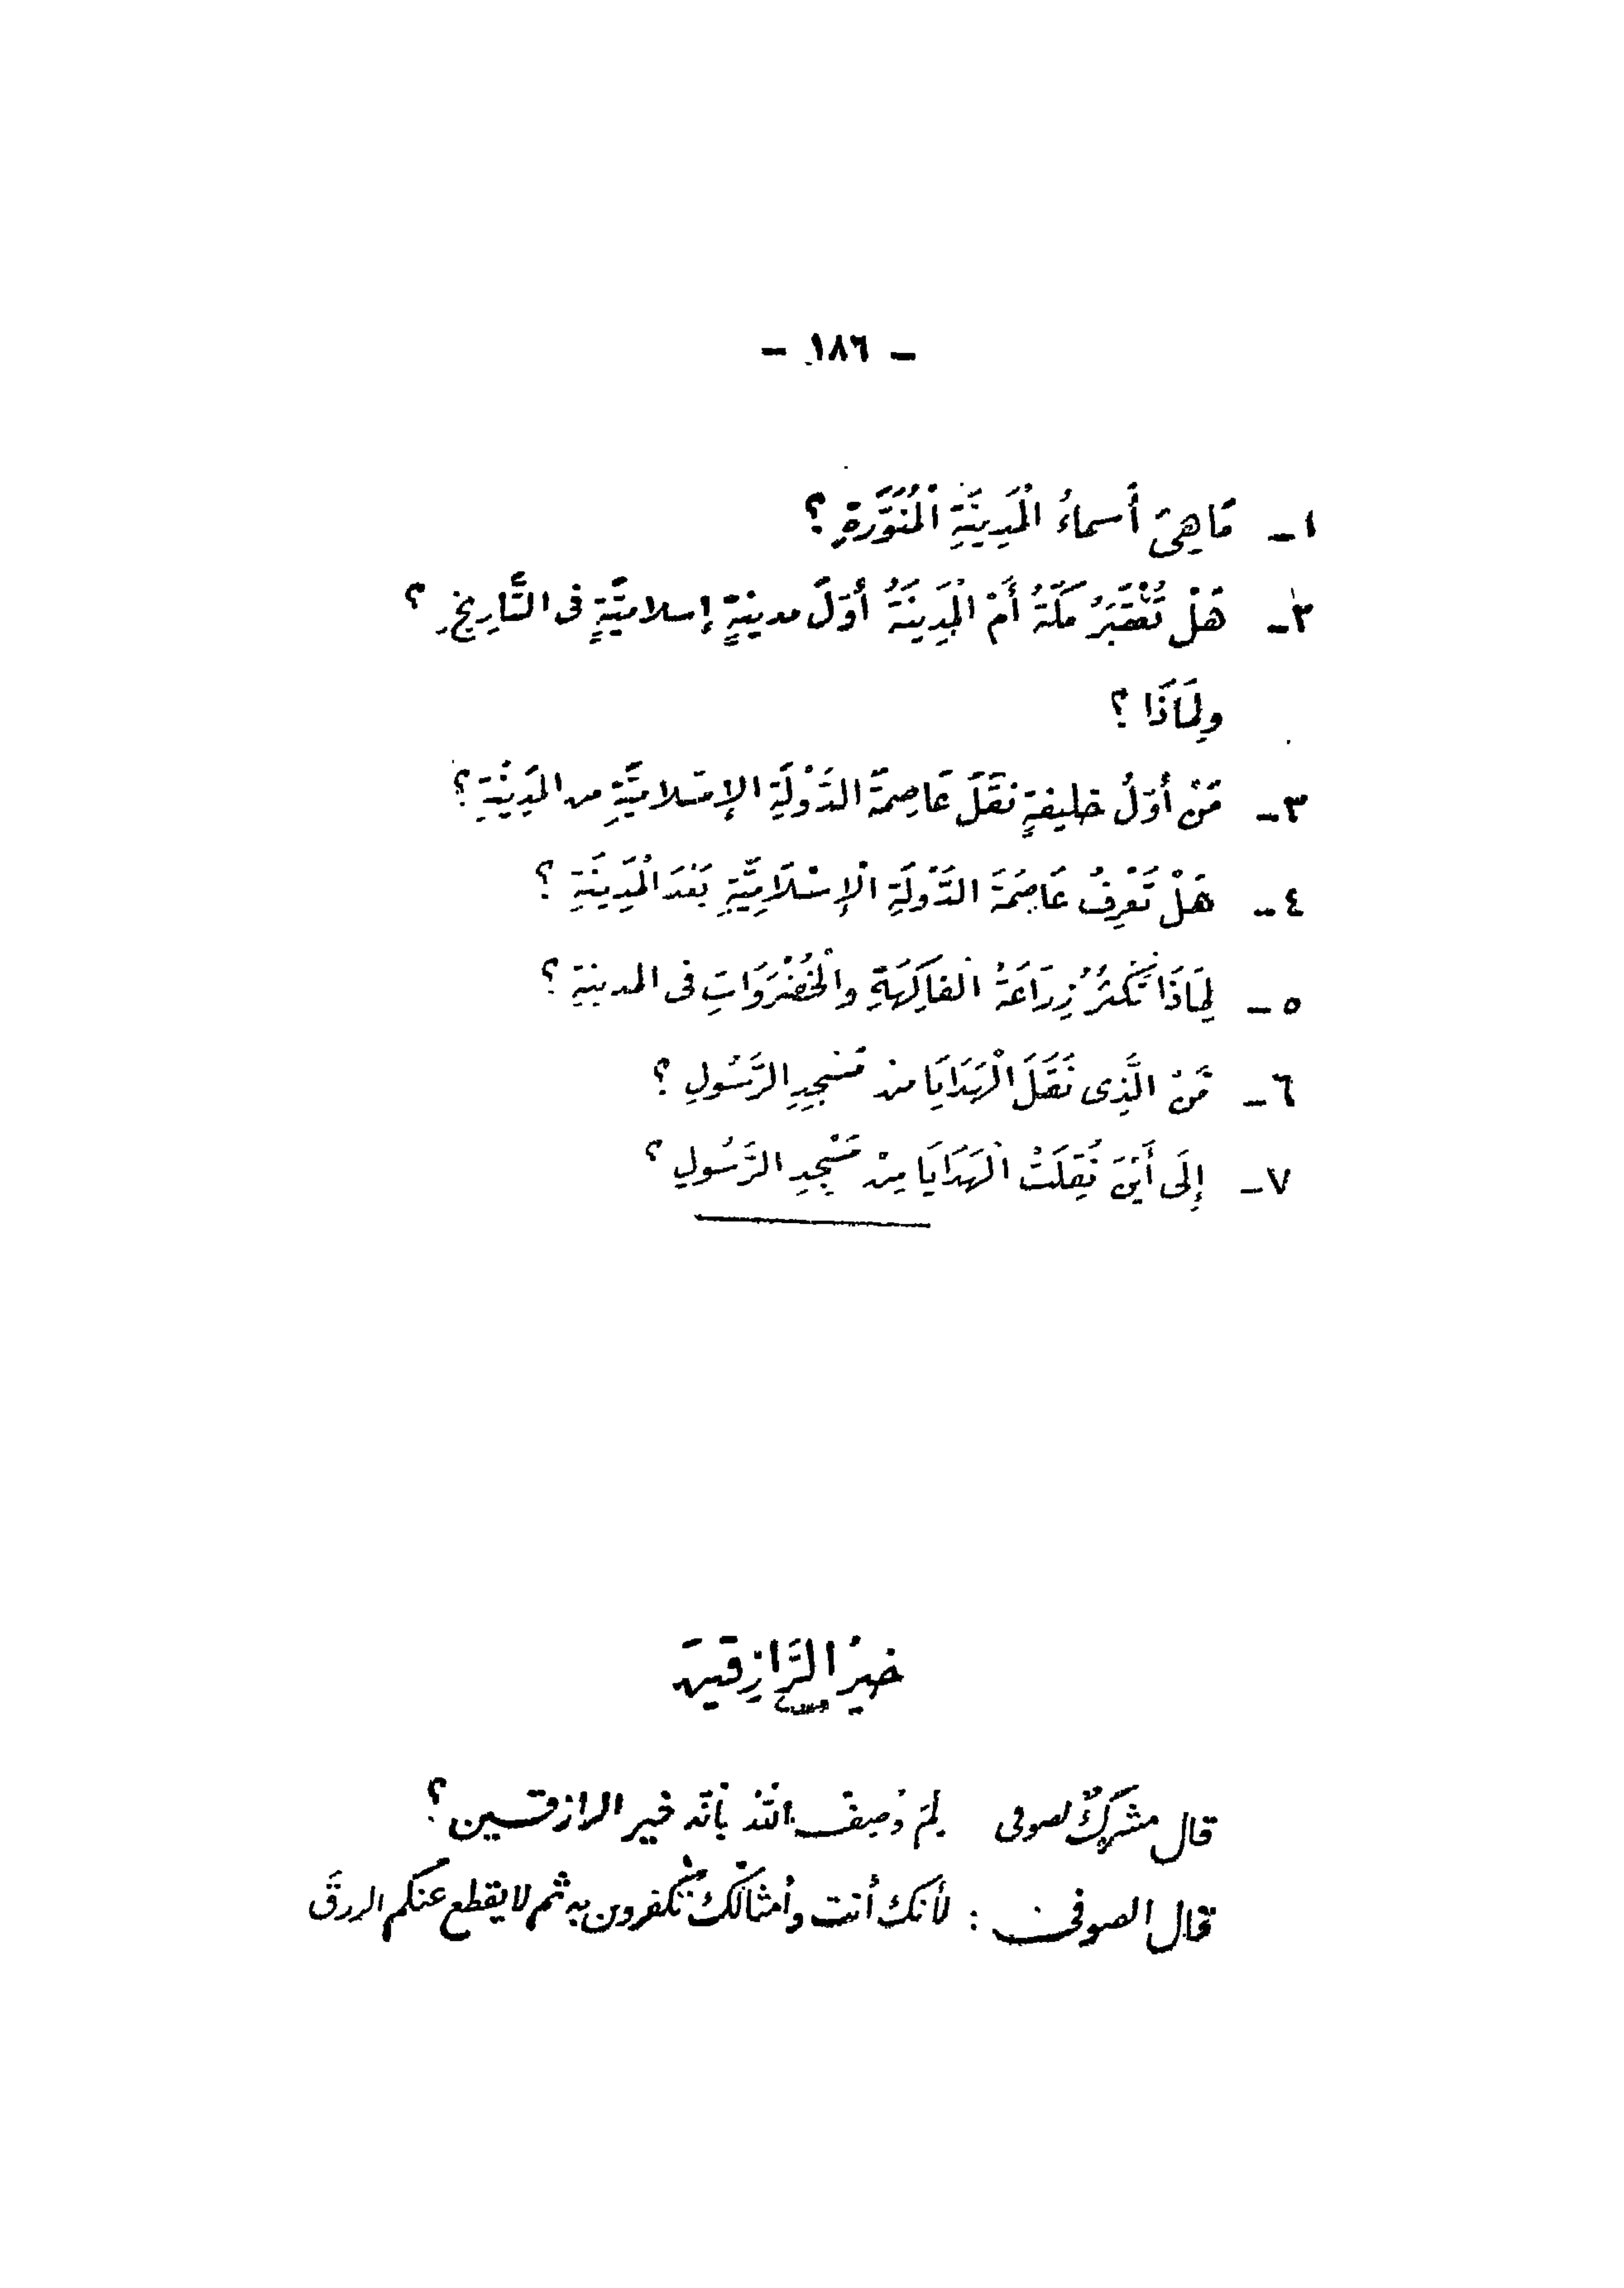 – ١٨٦ –
١ – مَا هِيَ أَسماءُ الْمَدِينَةِ الْمُنَوَّرَةِ ؟
٢ – هَلْ تُعْتَبَرُ مَكَّةُ أَمْ الْمَدِينَةُ أَوَّلَ مدينةٍ إسلاميَّةٍ فى التَّارِيخِ ؟
ولِمَاذَا ؟
٣ – مَنْ أَوَّلُ خليفةٍ نَقَلَ عَاصِمَةَ الدَّوْلَةِ الإِسْلاميَّةِ من المَدِينَةِ ؟
٤ – هَلْ تَعْرِفُ عَاصِمَةَ الدَّوْلَةِ الْإِسْلَامِيَّةِ بَعْدَ الْمَدِينَةِ ؟
٥ – لِمَاذَا تَكْثُرُ زِرَاعَةُ الْفَاكِهَةِ والْخُضْرَوَاتِ فى المدينةِ ؟
٦ – مَنْ الَّذِى نَقَلَ الْهَدَايَا من مَسْجِدِ الرَّسُولِ ؟
٧ – إِلَى أَيْنَ نُقِلَتْ الْهَدَايَا مِنْ مَسْجِدِ الرَّسُولِ ؟
خيرُ الرَّازِقينَ
قال مشركٌ لصوفى لِمَ وُصِفَ اللهُ بأنّه خير الرازقين ؟
قال الصوفى : لأنكَ أنت وأمثالكَ تكفرون به ثم لا يقطع عنكم الرزقَ